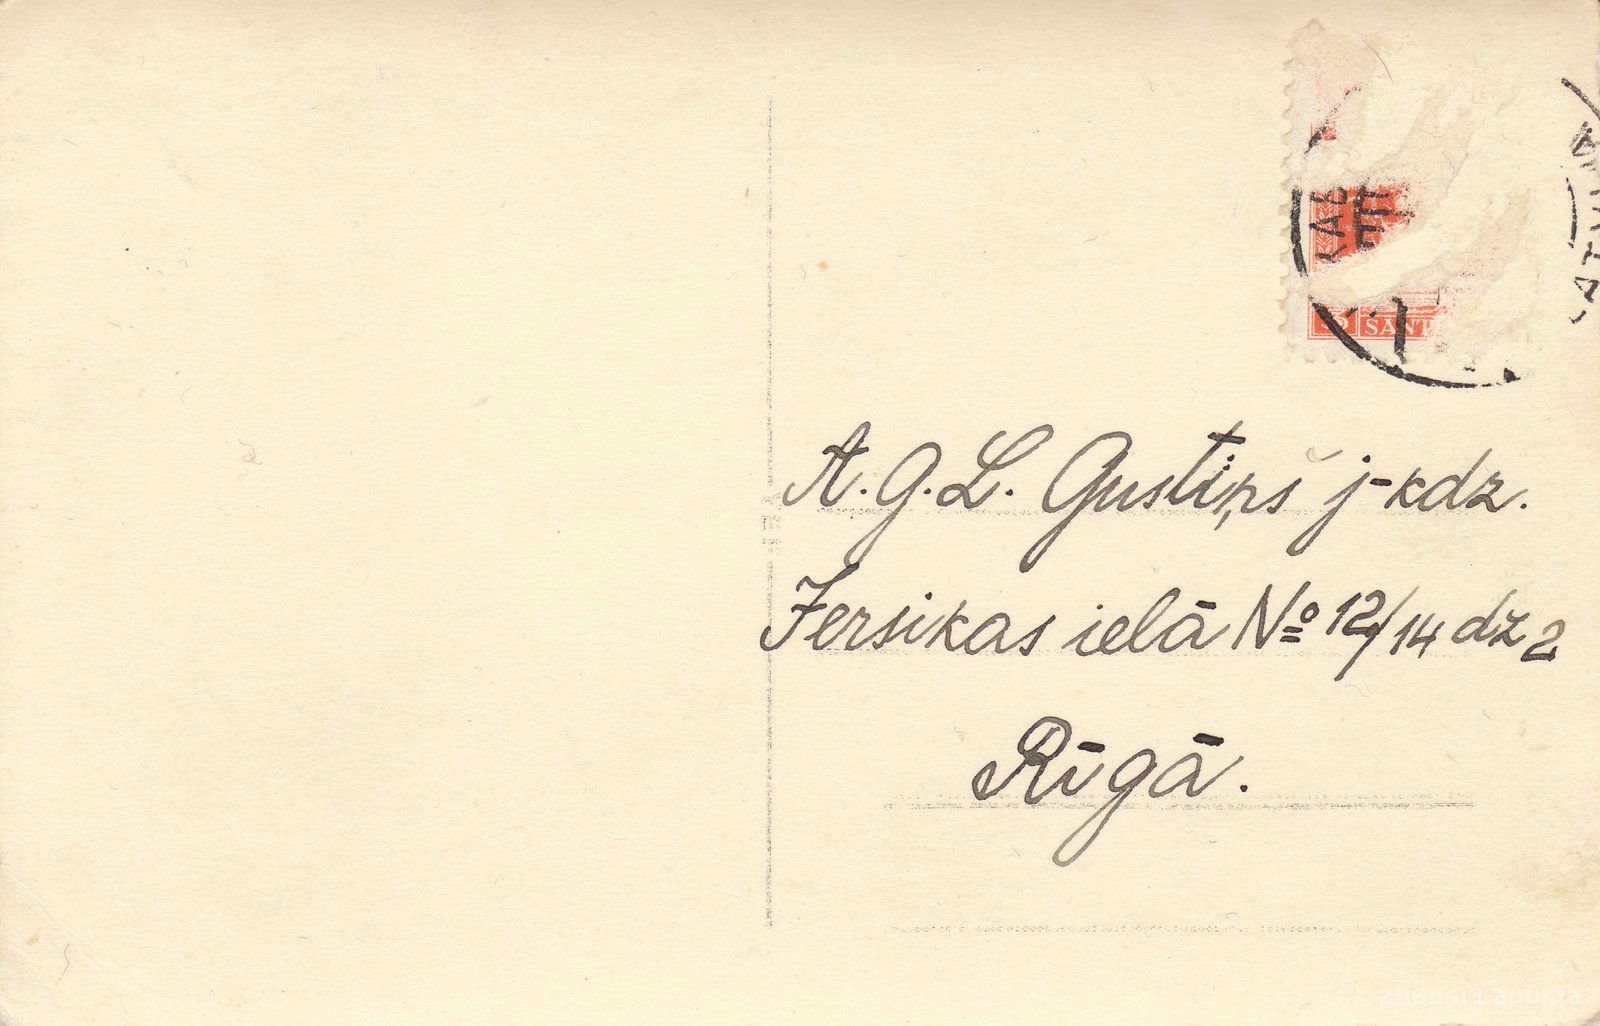 LATVIJA
3 SANT
A. G. L. Gustiņš j-kdz.
Jersikas ielā № 12/14 dz 2
Rīgā.
Zudusī Latvija